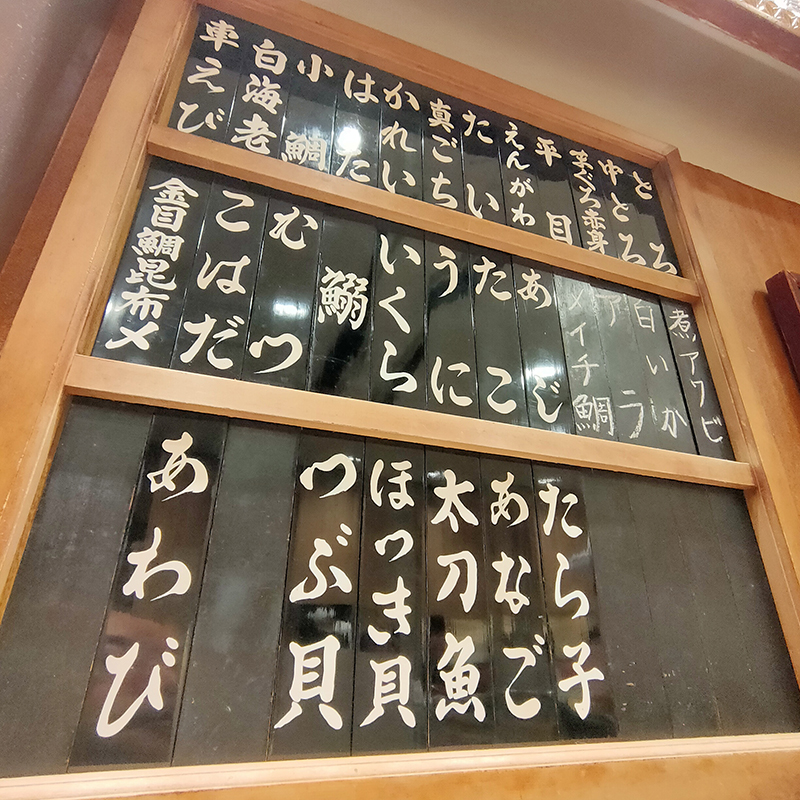 とろ
中とろ
まぐろ赤身
平目
えんがわ
たい
真ごち
かれい
はた
小鯛
白海老
車えび
煮アワビ
白いか
アラ
メイチ鯛
あじ
たこ
うに
いくら
鰯
むつ
こはだ
金目鯛昆布〆
たら子
あなご
太刀魚
ほっき貝
つぶ貝
あわび